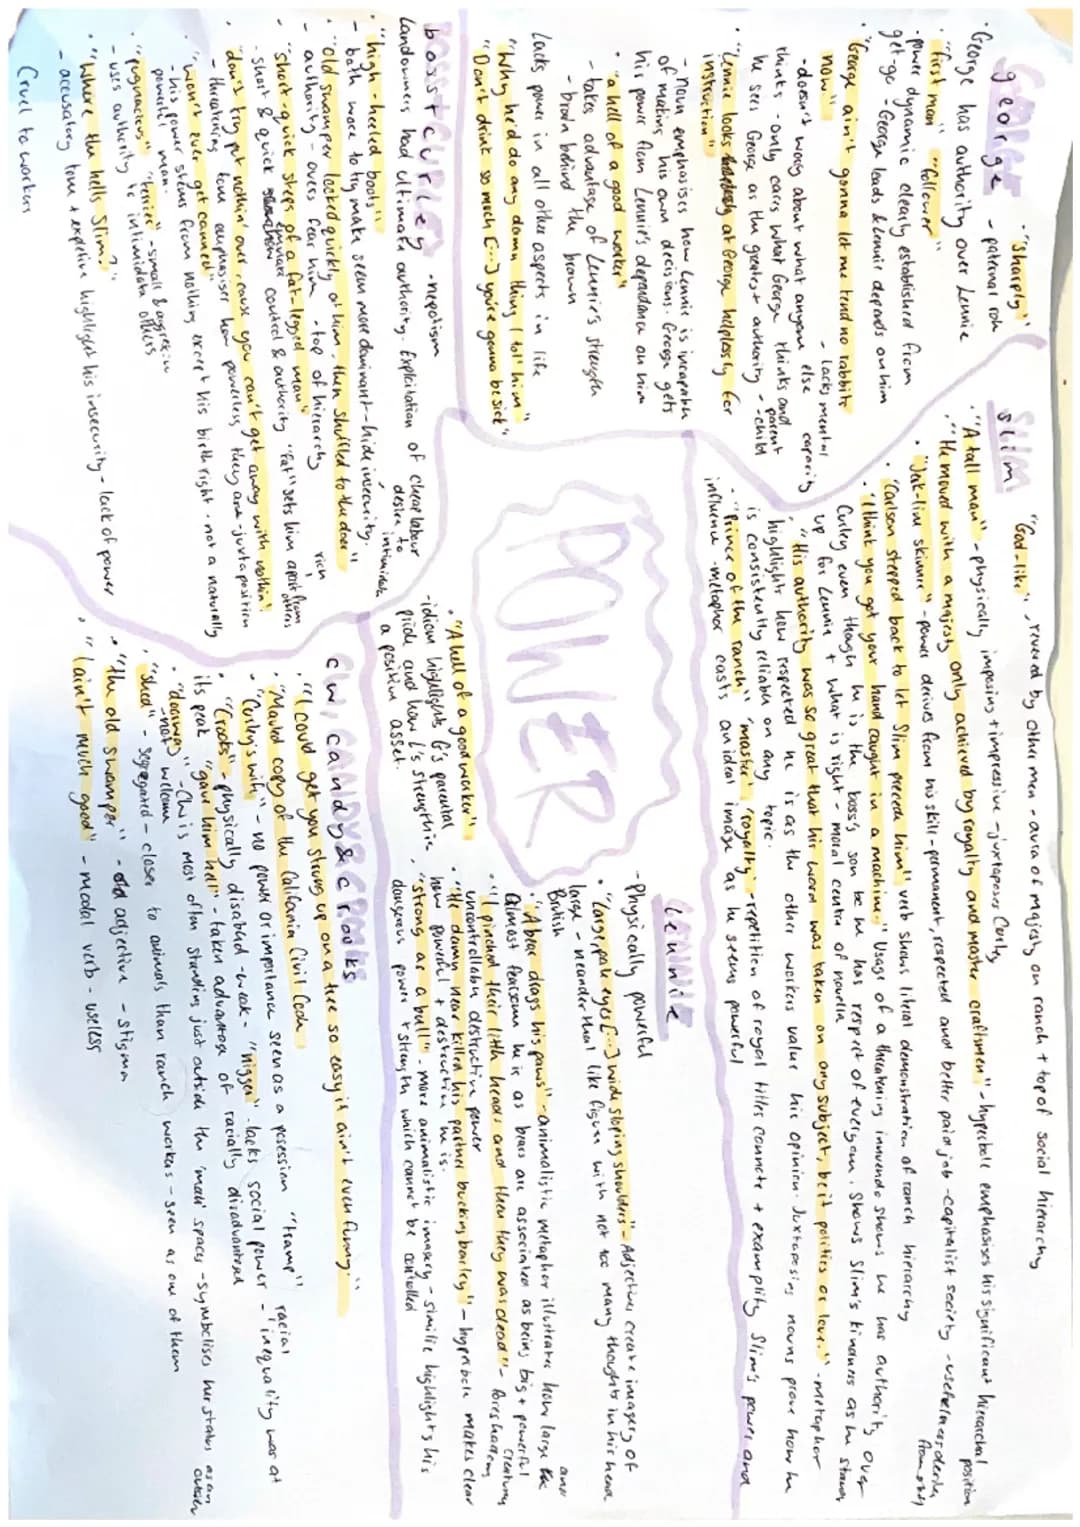 POWER
george - "sharply"
- paternal role
George has authority over Lennie
· "first man" "follower"
- power dynamic clearly established from
get-go - George leads & Lennie depends on him
· "George ain't gonna let me tend no rabbits
now"
- lacks mental
capacity
- doesn't worry about what anyone else
thinks - only cares what George thinks and
he sees George as the greatest authority - parent
- child
· "Lennie looks helplessly at George helplessly for
instruction"
- noun emphasises how Lennie is incapable
of making his own decisions. George gets
his power from Lennie's dependance on him
· "a hell of a good worker"
- takes advantage of Lennie's strength
- brain behind the brawn
Lacks power in all other aspects in life
"Why he'd do any damn thing I tol' him"
"Don't drink so much [...] you're gonna be sick"
slim
"God-like", revered by other men - aura of majesty on ranch + top of social hierarchy
· "A tall man" - physically imposing + impressive - juxtaposes Curley
· "He moved with a majesty only achieved by royalty and master craftsmen" - hyperbole emphasises his significant hierarchal
position
· "Jerk-line skinner" - power derives from his skill - permanent, respected and better paid job - capitalist society - usefulness derives
from
· "Carlson stepped back to let Slim precede him" verb shows literal demonstration of ranch hierarchy
· "I think you got your hand caught in a machine" Usage of a threatening innuendo shows he has authority over
Curley even though he is the boss's son be he has respect of everyone. Shows Slim's kindness as he stands
up for Lennie + what is right - moral centre of novella
· "His authority was so great that his word was taken on any subject, be it politics or love." - metaphor
highlights how respected he is as the other workers value his opinion. Juxtaposing nouns prove how he
is consistently reliable on any topic.
· "Prince of the ranch" "master" "royalty" - repetition of royal titles connote + examplify Slim's power and
influence - metaphor casts an ideal image as he seems powerful
boss + curley - nepotism
Landowners had ultimate authority. Exploitation of cheap labour
· "high-heeled boots"
desire to
intimidate
- both wore to try make seem more dominant - hide insecurity.
· "old swamper looked quickly at him, then shuffled to the door"
- authority - overs fear him
- top of hierarchy
rich
· "short-quick steps of a fat-legged man"
"Fat" sets him apart from
others
- short & quick emulate control & authority
· "don't try put nothin' over, cause you can't get away with nothin'.
- threatening tone emphasises how powerless they are - juxtaposition
· "won't ever get canned"
- his power stems from nothing except his birth right - not a naturally
powerful man.
· "pugnacious" "terrier" - small & aggressive
- uses authority to intimidate others
· "Where the hells Slim?"
- accusatory tone + expletive highlights his insecurity - lack of power
Cruel to workers
lennie
- Physically powerful
· "Large, pale eyes [...] wide sloping shoulders" - Adjectives create imagery of
large - neanderthal like figure with not too many thoughts in his head
and
British
· "A bear drags his paws" - animalistic metaphor illustrates how large
almost fearsome he is as bears are associated as being big + powerful
creatures
· "I pinched their little heads and then they was dead" - foreshadowing
uncontrollable destructive power
· "He damn near killed his partner bucking barley" - hyperbole makes clear
how powerful + destructive he is.
· "strong as a bull" - more animalistic imagery - simile highlights his
dangerous power + strength which cannot be controlled
· "A hell of a good worker"
- idiom highlights G's parental
pride and how L's strength is
a positive asset.
cw, candy & crooks
· "I could get you strung up on a tree so easy it ain't even funny."
· "Mauled copy of the California Civil Code
· "Curley's wife" - no power or importance seen as a posession "tramp"
racial
· "Crooks" - physically disabled - weak - "nigger" - lacks social power - inequality was at
its peak "gave him hell" - taken advantage of racially disadvantaged
· "doorway" - CW is most often standing just outside the 'male' spaces - symbolises her status as an
outsider
- not welcome
· "shed" - segregated - closer to animals than ranch workers - seen as one of them
· "the old swamper" - old adjective - stigma
· "I ain't much good" - modal verb - useless